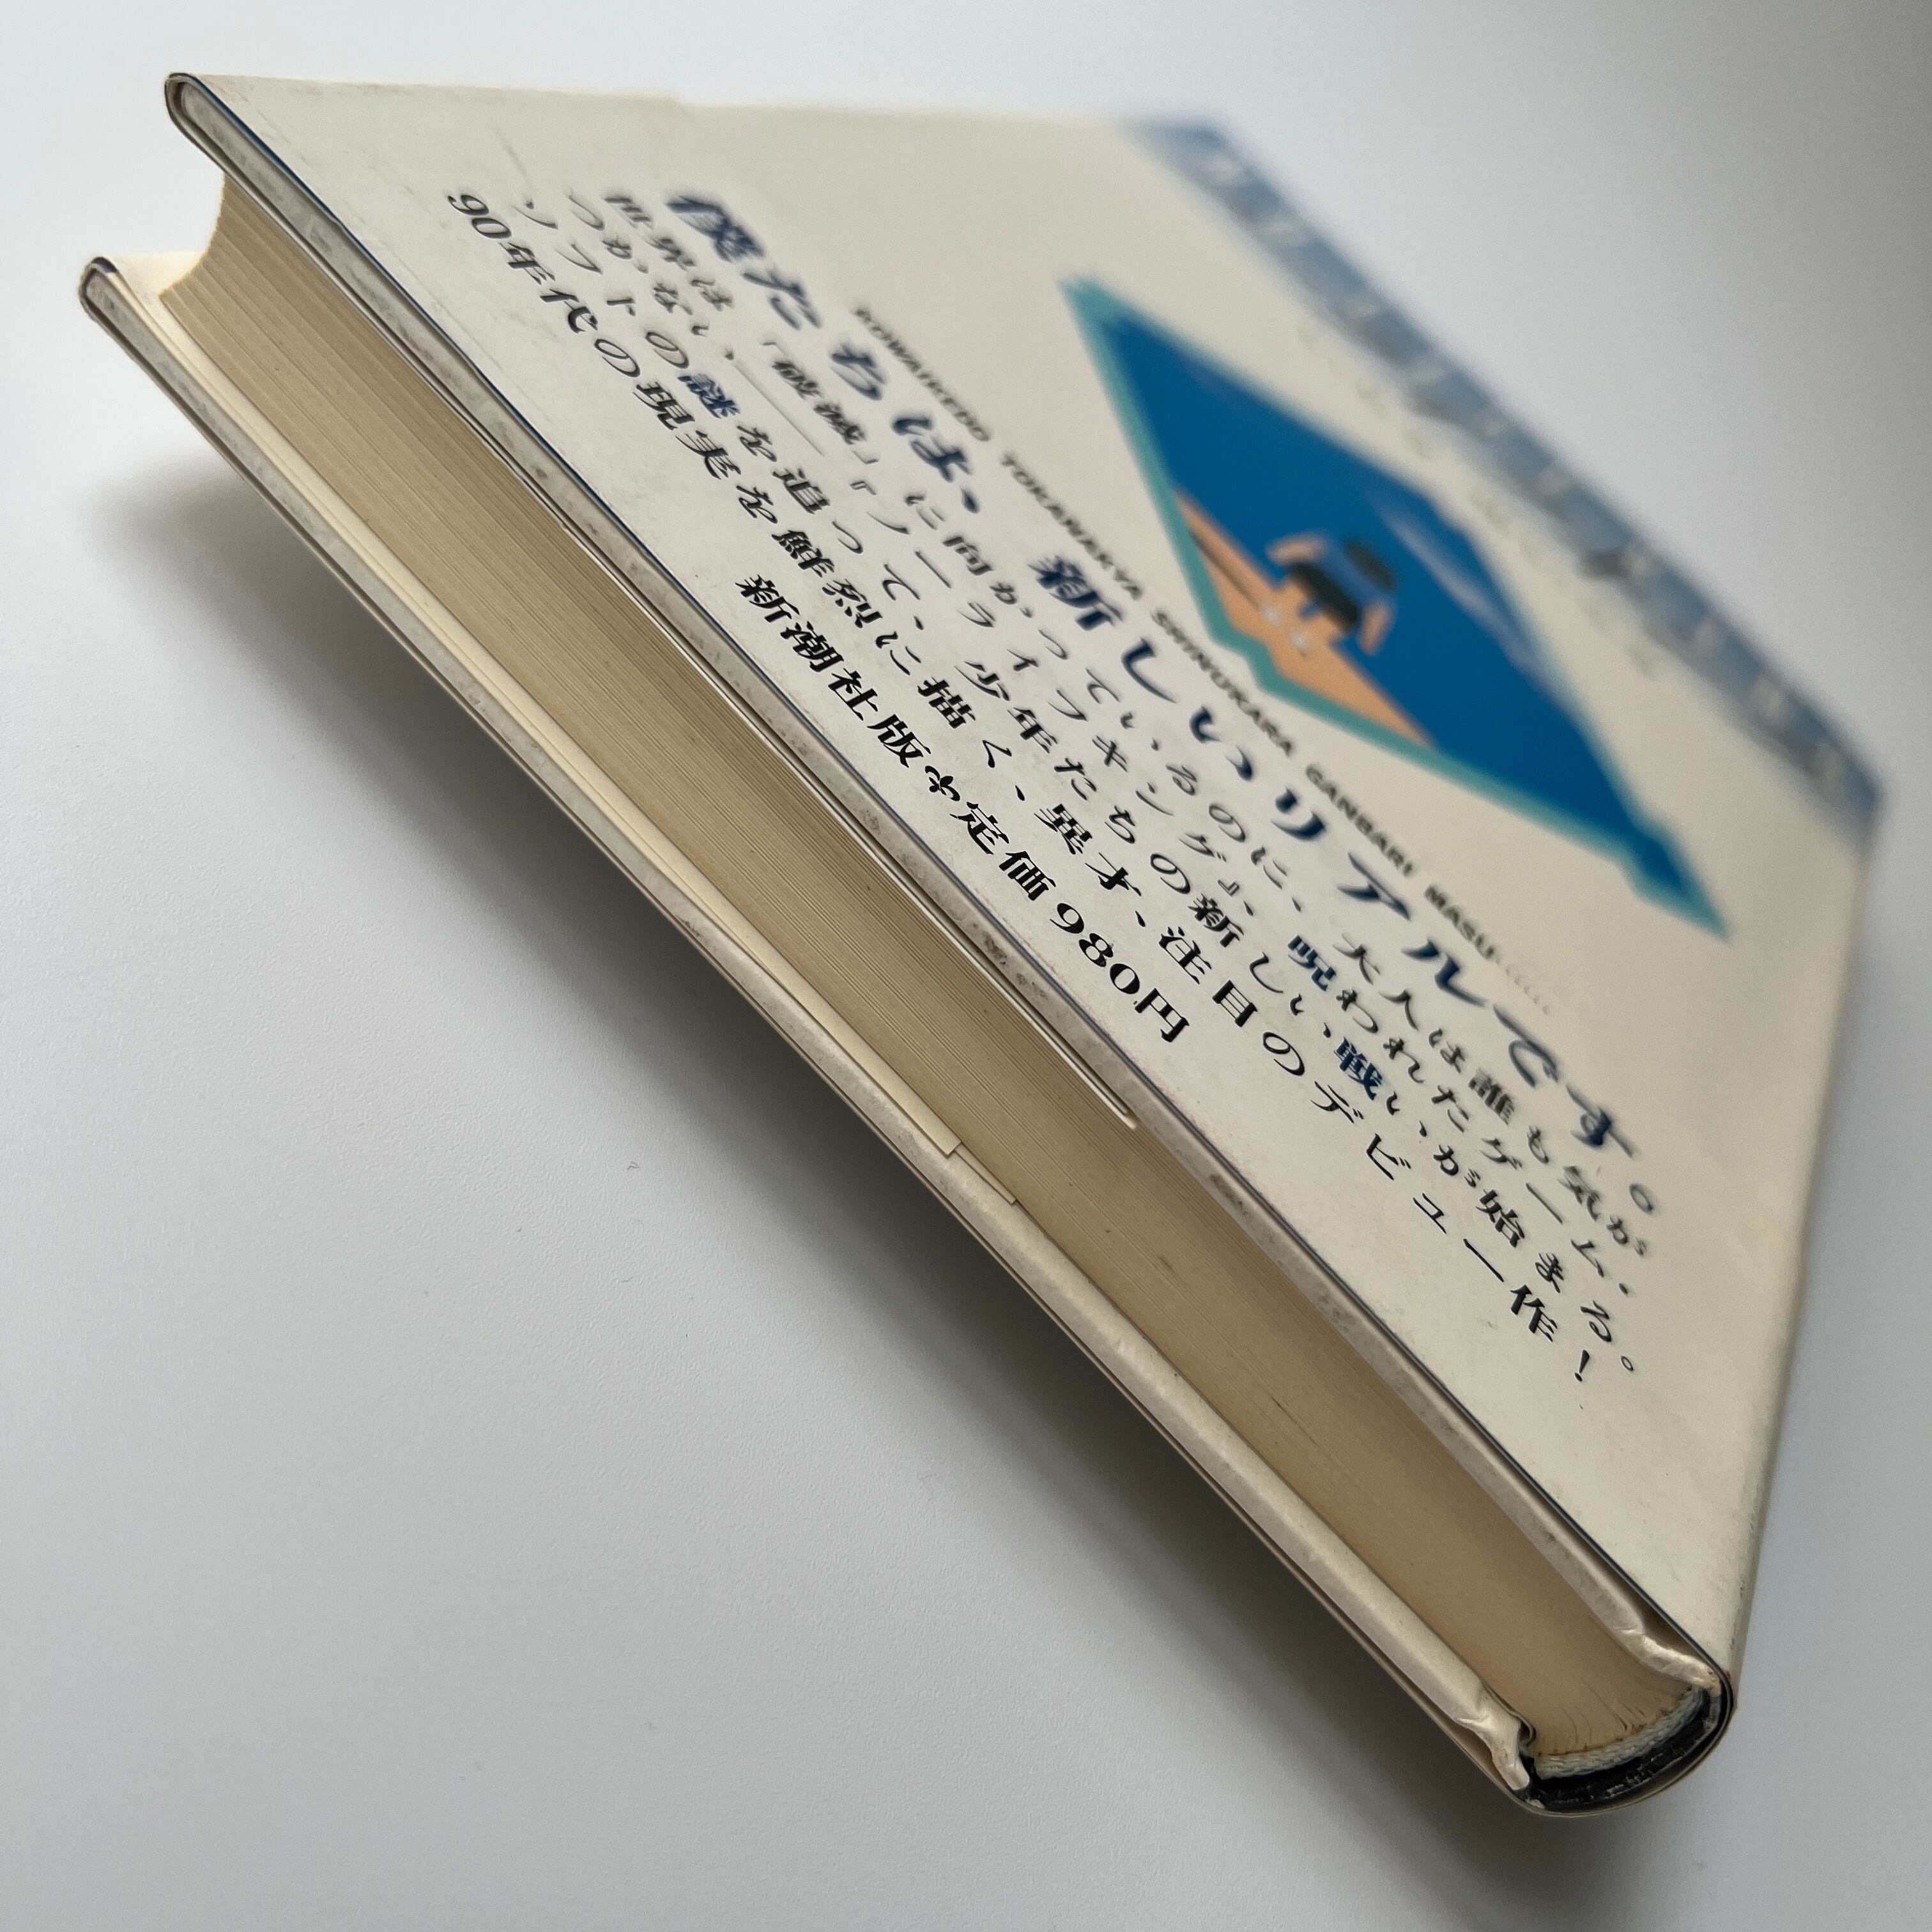 KOWAIKEDO TOKANAKYA SHINUKARA GANBARI MASU
僕たちは、新しいリアルです。
世界は「破滅」に向かっているのに、大人は誰も気が
つかない――『ノーライフキング』、呪われたゲーム・
ソフトの謎を追って、少年たちの新しい戦いが始まる。
90年代の現実を鮮烈に描く、異才、注目のデビュー作！
新潮社版 定価980円